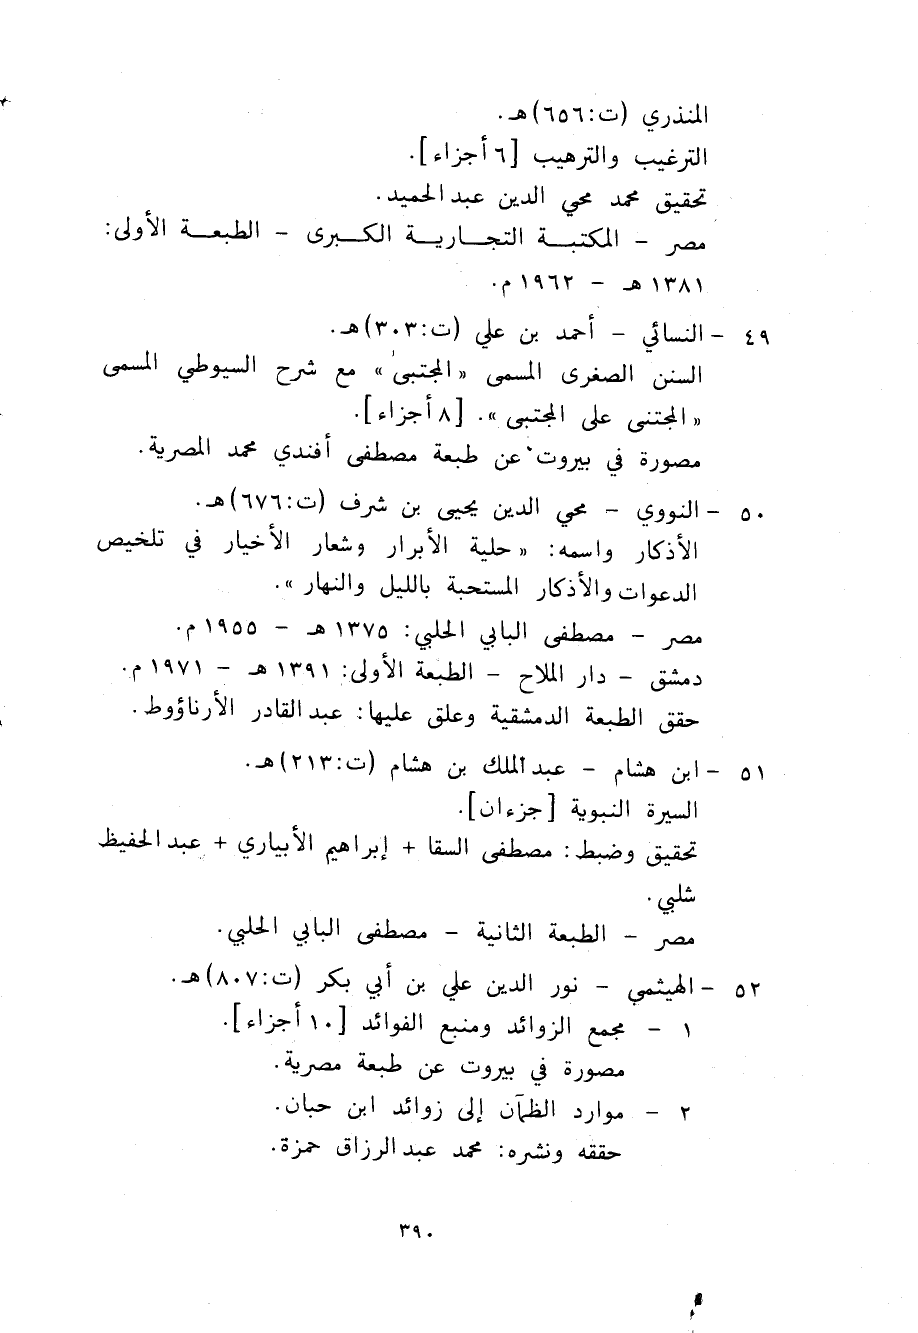 المنذري (ت:٦٥٦)هـ.
الترغيب والترهيب [٦ أجزاء].
تحقيق محمد محي الدين عبد الحميد.
مصر – المكتبة التجارية الكبرى – الطبعة الأولى:
١٣٨١ هـ – ١٩٦٢ م.
٤٩ – النسائي – أحمد بن علي (ت:٣٠٣)هـ.
السنن الصغرى المسمى «المجتبى» مع شرح السيوطي المسمى
«المجتنى على المجتبى». [٨ أجزاء].
مصورة في بيروت عن طبعة مصطفى أفندي محمد المصرية.
٥٠ – النووي – محي الدين يحيى بن شرف (ت:٦٧٦)هـ.
الأذكار واسمه: «حلية الأبرار وشعار الأخيار في تلخيص
الدعوات والأذكار المستحبة بالليل والنهار».
مصر – مصطفى البابي الحلبي: ١٣٧٥ هـ – ١٩٥٥ م.
دمشق – دار الملاح – الطبعة الأولى: ١٣٩١ هـ – ١٩٧١ م.
حقق الطبعة الدمشقية وعلق عليها: عبد القادر الأرناؤوط.
٥١ – ابن هشام – عبد الملك بن هشام (ت:٢١٣)هـ.
السيرة النبوية [جزءان].
تحقيق وضبط: مصطفى السقا + إبراهيم الأبياري + عبد الحفيظ
شلبي.
مصر – الطبعة الثانية – مصطفى البابي الحلبي.
٥٢ – الهيثمي – نور الدين علي بن أبي بكر (ت:٨٠٧)هـ.
١ – مجمع الزوائد ومنبع الفوائد [١٠ أجزاء].
مصورة في بيروت عن طبعة مصرية.
٢ – موارد الظمآن إلى زوائد ابن حبان.
حققه ونشره: محمد عبد الرزاق حمزة.
٣٩٠